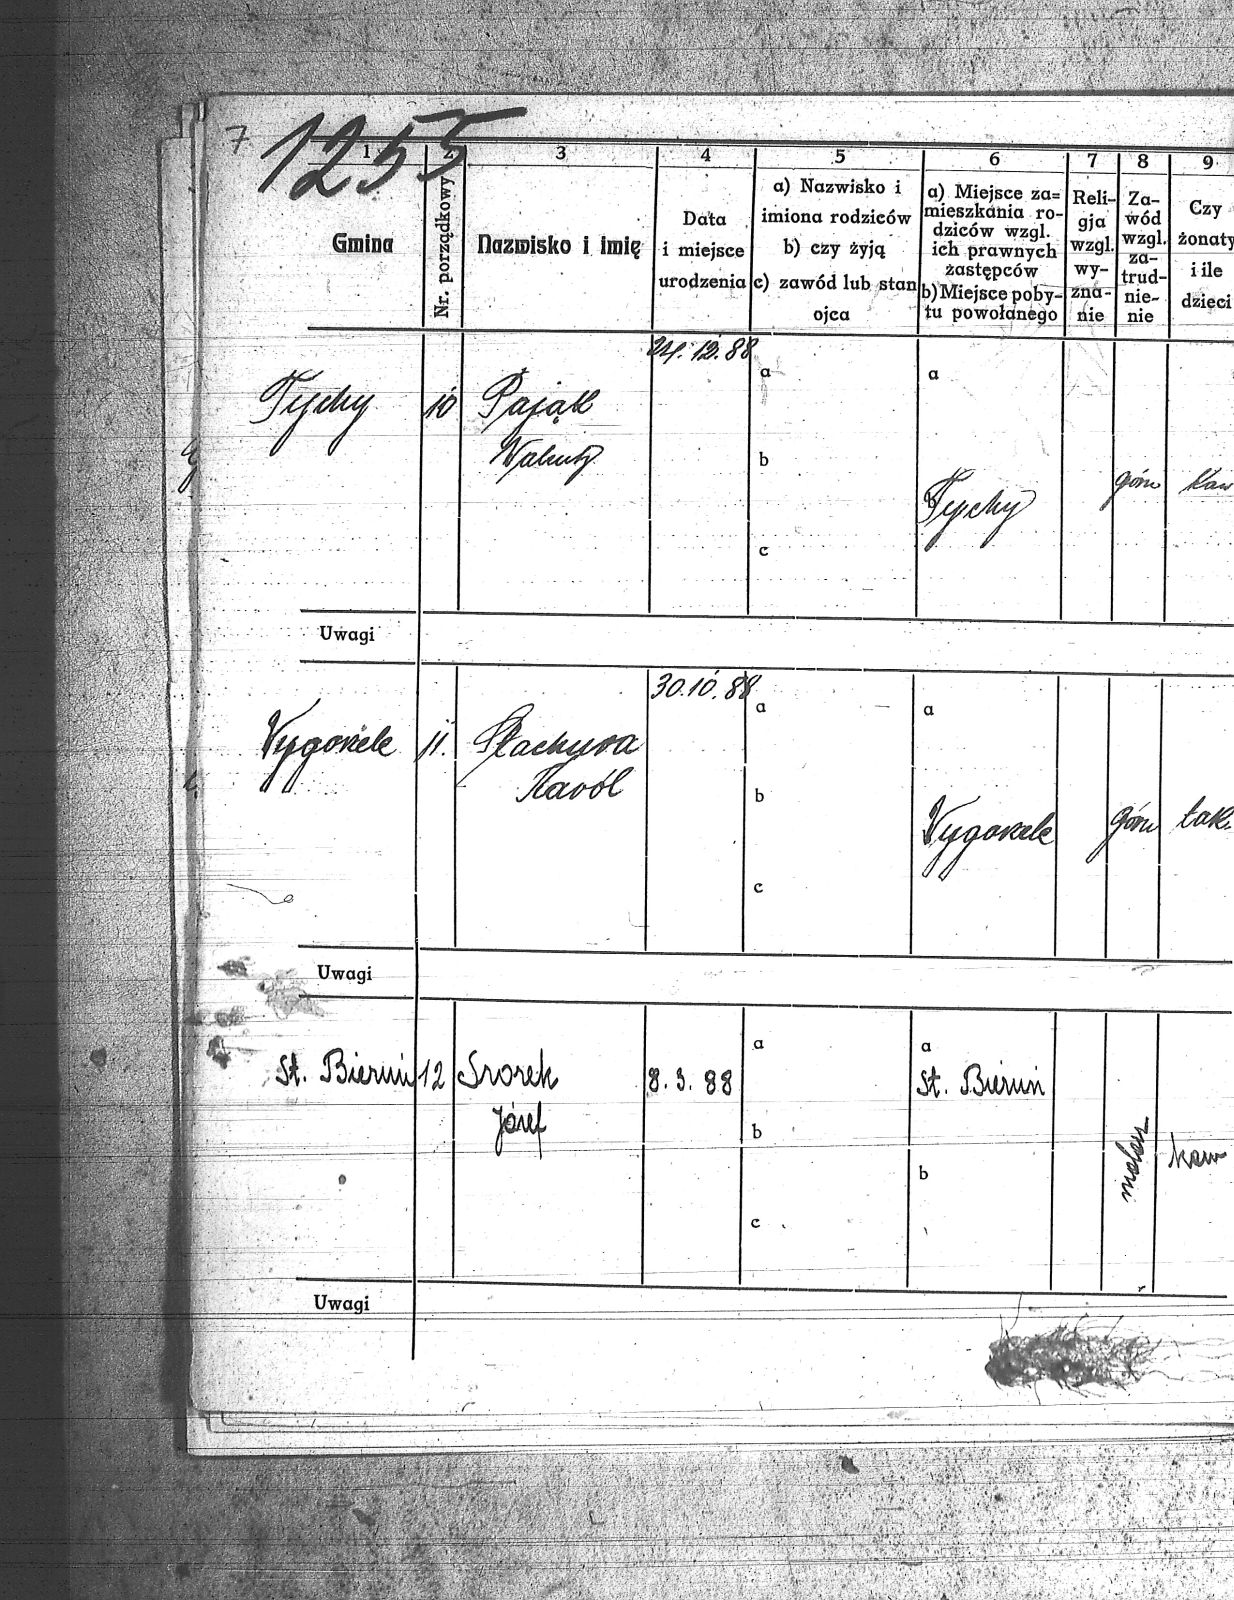 7
1255
1
2
3
4
5
6
7
8
9
Gmina
Nr. porządkowy
Nazwisko i imię
Data
i miejsce
urodzenia
a) Nazwisko i
imiona rodziców
b) czy żyją
c) zawód lub stan
ojca
a) Miejsce za=
mieszkania ro-
dziców wzgl.
ich prawnych
zastępców
b) Miejsce poby-
tu powołanego
Reli-
gja
wzgl.
wy-
zna-
nie
Za-
wód
wzgl.
za-
trud-
nie-
nie
Czy
żonaty
i ile
dzieci
Tychy
10
Pająk
24.12.88
a
b
c
a
b
Tychy
górn
Kaw
Uwagi
11.
Karól
30.10.88
a
b
c
a
górn
tak.
Uwagi
St. Bieruń
12
Józef
8.3.88
a
b
c
a
St. Bieruń
b
kaw
Uwagi